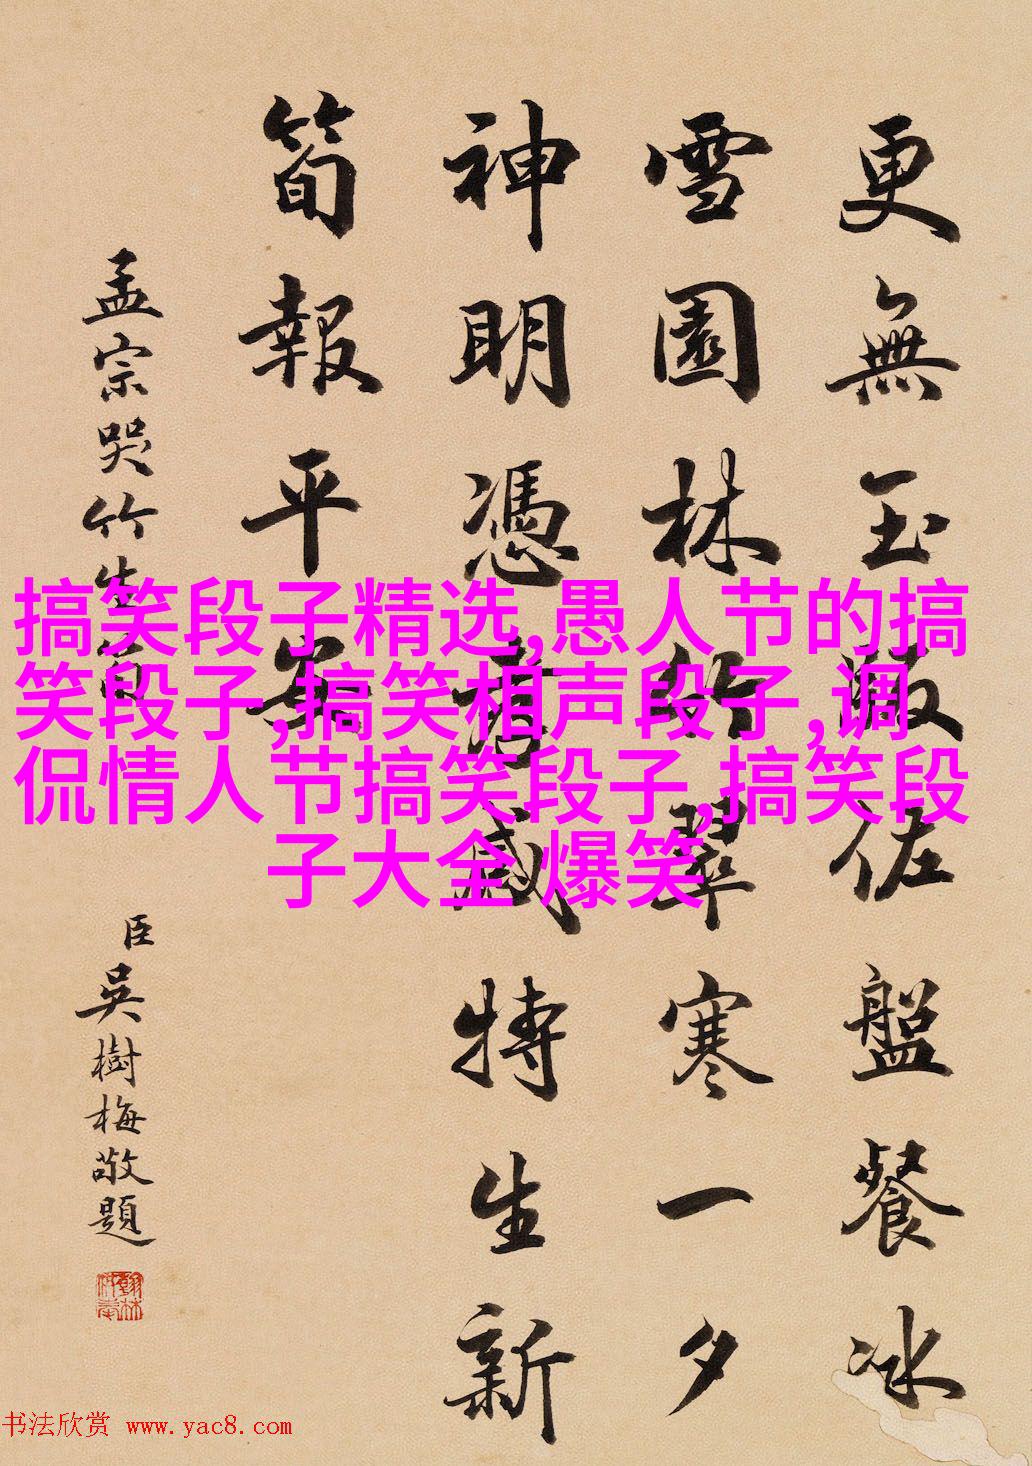 更無玉版佐盤餐冰
雪園林竹翠寒一夕
神明憑孝感特生新
筍報平安
孟宗哭竹生筍
臣吳樹梅敬題
搞笑段子精选,愚人节的搞
笑段子,搞笑相声段子,调
侃情人节搞笑段子,搞笑段
子大全 爆笑
书法欣赏 www.yac8.com